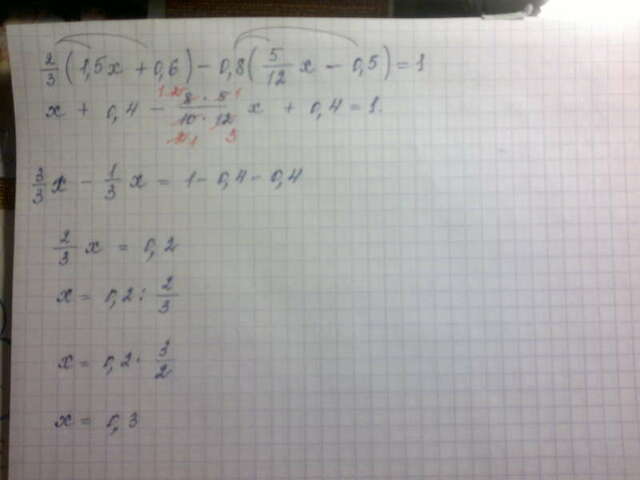 2/3 (1,5x + 0,6) - 0,8 (5/12 x - 0,5) = 1
x + 0,4 - 8 · 5 / 10 · 12 x + 0,4 = 1.
3/3 x - 1/3 x = 1 - 0,4 - 0,4
2/3 x = 0,2
x = 0,2 : 2/3
x = 0,2 · 3/2
x = 0,3